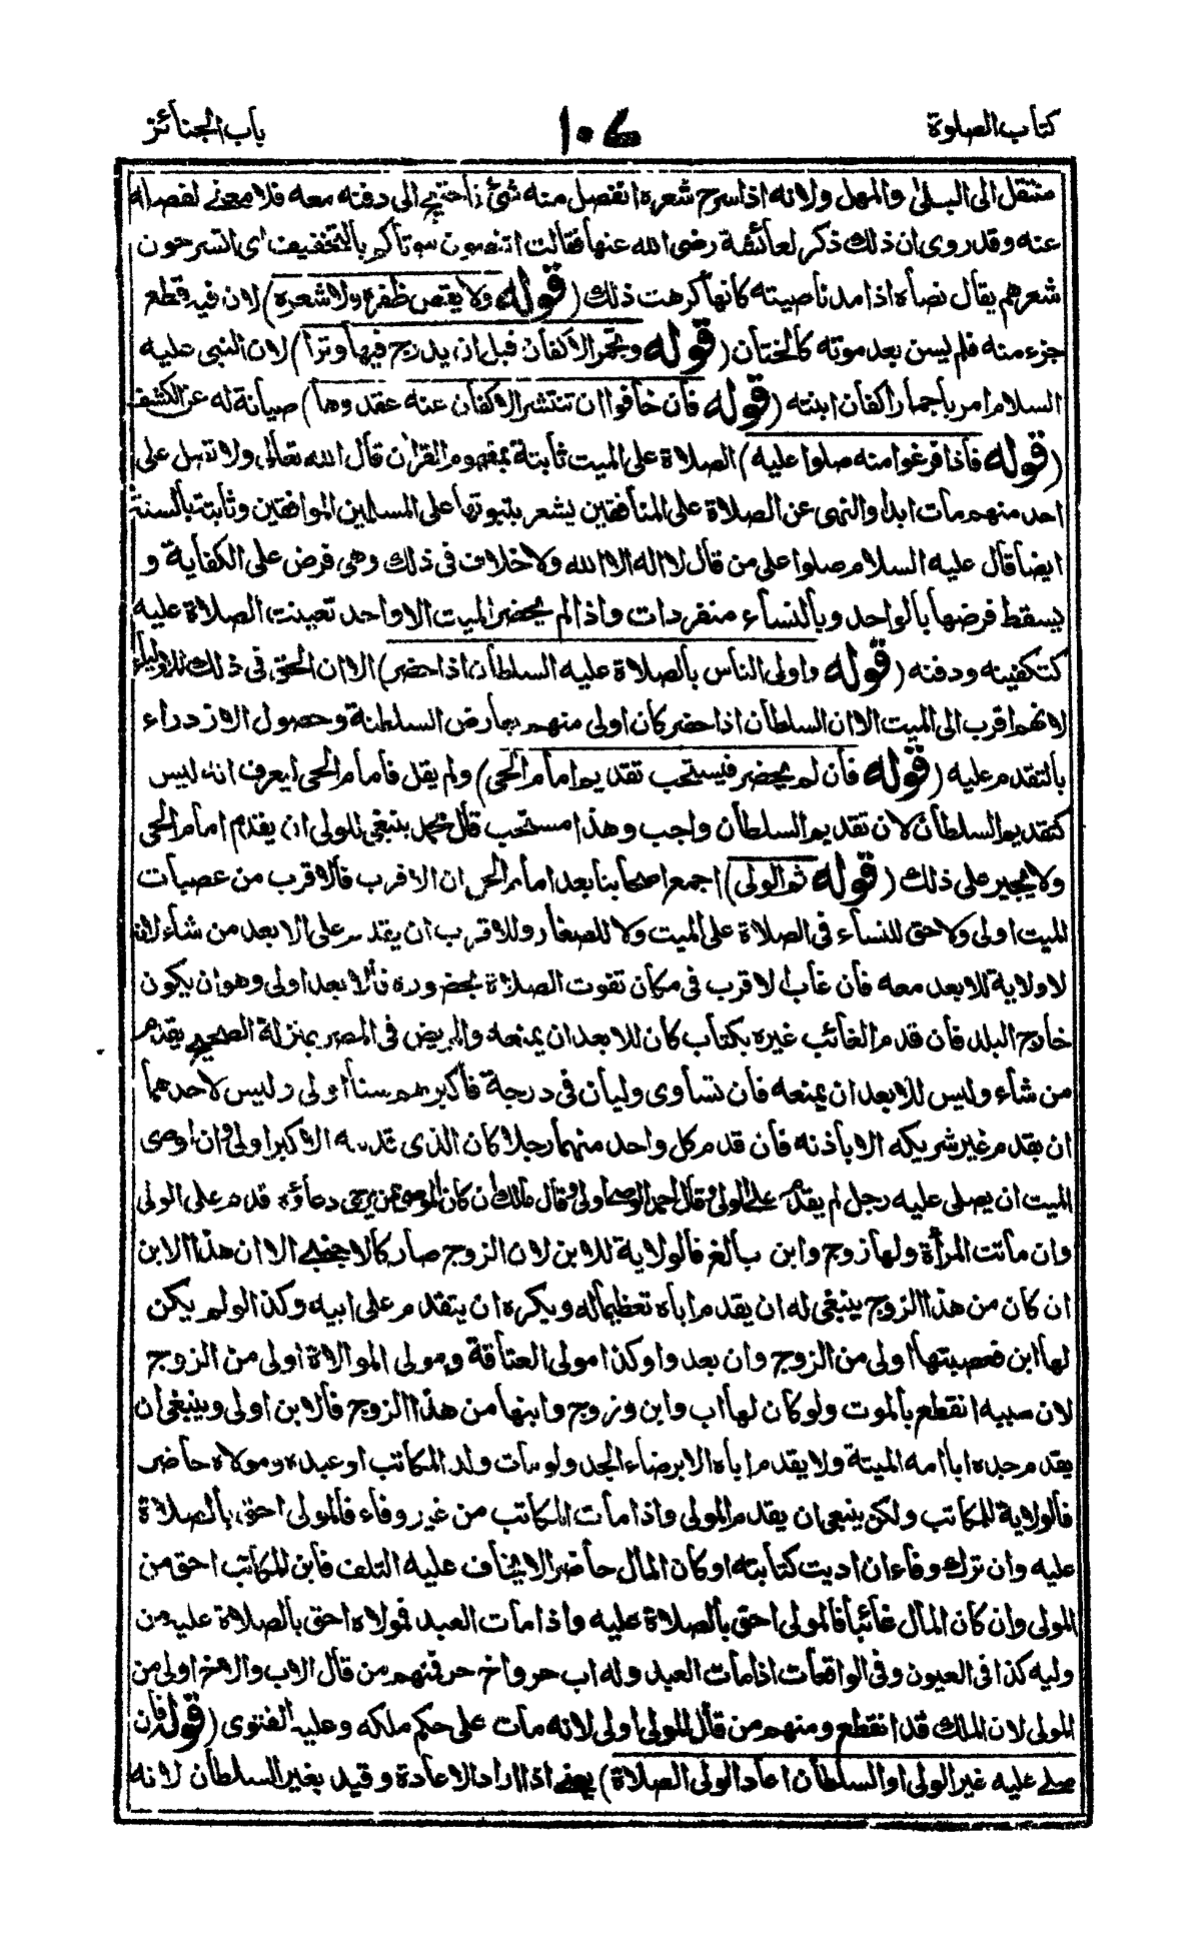 كتاب الصلوة ١٠٦ باب الجنائز
منتقل الى البلى والمهل ولانه اذا سرح شعره انفصل منه شئ فاحتيج الى دفنه معه فلا معنى لفصله
عنه وقد روى ان ذلك ذكر لعائشة رضى الله عنها فقالت اتنصون موتاكم بالتخفيف اى اتسرحون
شعرهم يقال نصاه اذا مد ناصيته كانها كرهت ذلك (قوله ولا يقص ظفره ولا شعره) لان فيه قطع
جزء منه فلم يسن بعد موته كالختان (قوله وتجمر الاكفان قبل ان يدرج فيها وترا) لان النبى عليه
السلام امر باجمار اكفان ابنته (قوله فان خافوا ان تنتشر الاكفان عنه عقدوها) صيانة له عن الكشف
(قوله فاذا فرغوا منه صلوا عليه) الصلاة على الميت ثابتة بمفهوم القران قال الله تعالى ولا تصل على
احد منهم مات ابدا والنهى عن الصلاة على المنافقين يشعر بثبوتها على المسلمين الموافقين وثابتة بالسنة
ايضا قال عليه السلام صلوا على من قال لا اله الا الله ولا خلاف فى ذلك وهى فرض على الكفاية و
يسقط فرضها بالواحد وبالنساء منفردات واذا لم يحضر الميت الا واحد تعينت الصلاة عليه
كتكفينه ودفنه (قوله واولى الناس بالصلاة عليه السلطان اذا حضر) الا ان الحق فى ذلك للاولياء
لانهم اقرب الى الميت الا ان السلطان اذا حضر كان اولى منهم بعارض السلطنة وحصول الازدراء
بالتقدم عليه (قوله فان لم يحضر فيستحب تقديم امام الحى) ولم يقل فامام الحى ليعرف انه ليس
كتقديم السلطان لان تقديم السلطان واجب وهذا مستحب قال محمد ينبغى للولى ان يقدم امام الحى
ولا يجبر على ذلك (قوله ثم الولى) اجمع اصحابنا بعد امام الحى ان الاقرب فالاقرب من عصبات
الميت اولى ولا حق للنساء فى الصلاة على الميت ولا للصغار وللاقرب ان يقدم على الابعد من شاء لانه
لا ولاية للابعد معه فان غاب الاقرب فى مكان تفوت الصلاة بحضوره فالابعد اولى وهو ان يكون
خارج البلد فان قدم الغائب غيره بكتاب كان للابعد ان يمنعه والمريض فى المصر بمنزلة الصحيح يقدم
من شاء وليس للابعد ان يمنعه فان تساوى وليان فى درجة فاكبرهم سنا اولى وليس لاحدهما
ان يقدم غير شريكه الا باذنه فان قدم كل واحد منهما رجلا كان الذى قدمه الاكبر اولى وان اوصى
الميت ان يصلى عليه رجل لم يقدم على الولى وقال احمد الوصى اولى وقال مالك ان كان الموصى ممن يرجى دعاؤه قدم على الولى
وان ماتت المرأة ولها زوج وابن بالغ فالولاية للابن لان الزوج صار كالاجنبى الا ان هذا الابن
ان كان من هذا الزوج ينبغى له ان يقدم اباه تعظيما له ويكره ان يتقدم على ابيه وكذا لو لم يكن
لها ابن فعصبتها اولى من الزوج وان بعدوا وكذا مولى العتاقة ومولى الموالاة اولى من الزوج
لان سببه انقطع بالموت ولو كان لها اب وابن وزوج وابنها من هذا الزوج فالابن اولى وينبغى ان
يقدم جده ابا امه الميتة ولا يقدم اباه الا برضاء الجد ولو مات ولد المكاتب او عبده ومولاه حاضر
فالولاية للمكاتب ولكن ينبغى ان يقدم المولى واذا مات المكاتب من غير وفاء فالمولى احق بالصلاة
عليه وان ترك وفاء ان اديت كتابته او كان المال حاضرا لا يخاف عليه التلف فابن المكاتب احق من
المولى وان كان المال غائبا فالمولى احق بالصلاة عليه واذا مات العبد فمولاه احق بالصلاة عليه من
وليه كذا فى العيون وفى الواقعات اذا مات العبد وله اب حر واخ حر فمنهم من قال الاب والاخ اولى من
المولى لان الملك قد انقطع ومنهم من قال المولى اولى لانه مات على حكم ملكه وعليه الفتوى (قوله فان
صلى عليه غير الولى او السلطان اعاد الولى الصلاة) يعنى اذا اراد الاعادة وقيد بغير السلطان لانه